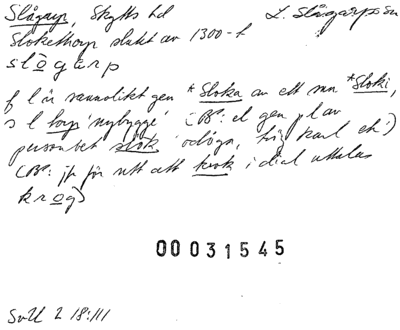 Slågarp, Skytts hd L. Slågarps sn
Slokethorp slutet av 1300-t
slōgarp
f l är sannolikt gen *Sloka av ett mn *Sloki,
s l torp 'nybygge' (BP: el gen pl av
personbet slok 'odåga, hög karl etc')
(BP: jfr för rätt att krok i dial uttalas
krog)
00031545
SvU 2 18:III